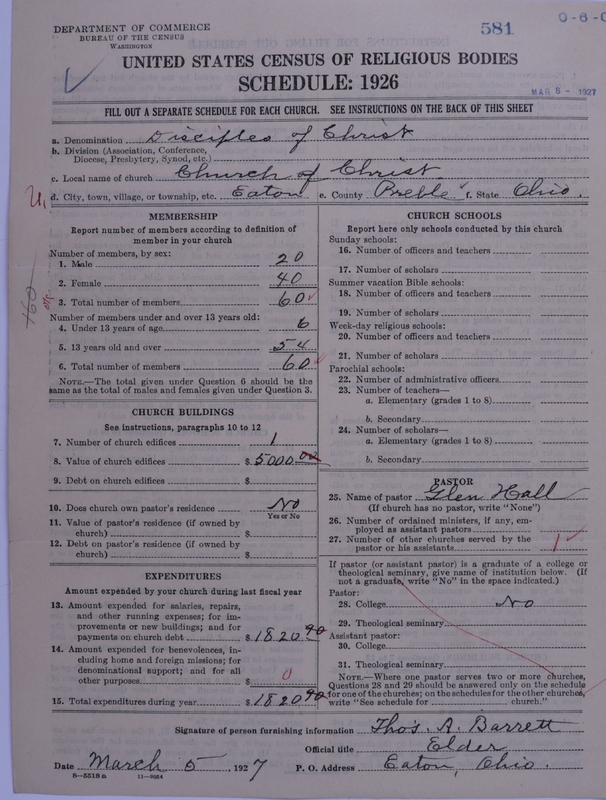 DEPARTMENT OF COMMERCE
BUREAU OF THE CENSUS
WASHINGTON
581
MAR 8 - 1927
UNITED STATES CENSUS OF RELIGIOUS BODIES
SCHEDULE: 1926
FILL OUT A SEPARATE SCHEDULE FOR EACH CHURCH. SEE INSTRUCTIONS ON THE BACK OF THIS SHEET
a. Denomination Disciples of Christ
b. Division (Association, Conference,
Diocese, Presbytery, Synod, etc.)
c. Local name of church Church of Christ
d. City, town, village, or township, etc. Eaton e. County Preble f. State Ohio.
MEMBERSHIP
Report number of members according to definition of
member in your church
Number of members, by sex:
1. Male 20
2. Female 40
3. Total number of members 60
Number of members under and over 13 years old:
4. Under 13 years of age 6
5. 13 years old and over 54
6. Total number of members 60
NOTE.—The total given under Question 6 should be the
same as the total of males and females given under Question 3.
CHURCH BUILDINGS
See instructions, paragraphs 10 to 12
7. Number of church edifices 1
8. Value of church edifices $ 5000.00
9. Debt on church edifices $
10. Does church own pastor's residence No
Yes or No
11. Value of pastor's residence (if owned by
church) $
12. Debt on pastor's residence (if owned by
church) $
EXPENDITURES
Amount expended by your church during last fiscal year
13. Amount expended for salaries, repairs,
and other running expenses; for im-
provements or new buildings; and for
payments on church debt $ 1820.90
14. Amount expended for benevolences, in-
cluding home and foreign missions; for
denominational support; and for all
other purposes $ 0
15. Total expenditures during year $ 1820.90
CHURCH SCHOOLS
Report here only schools conducted by this church
Sunday schools:
16. Number of officers and teachers
17. Number of scholars
Summer vacation Bible schools:
18. Number of officers and teachers
19. Number of scholars
Week-day religious schools:
20. Number of officers and teachers
21. Number of scholars
Parochial schools:
22. Number of administrative officers
23. Number of teachers—
a. Elementary (grades 1 to 8)
b. Secondary
24. Number of scholars—
a. Elementary (grades 1 to 8)
b. Secondary
PASTOR
25. Name of pastor Glen Hall
(If church has no pastor, write "None")
26. Number of ordained ministers, if any, em-
ployed as assistant pastors
27. Number of other churches served by the
pastor or his assistants 1
If pastor (or assistant pastor) is a graduate of a college or
theological seminary, give name of institution below. (If
not a graduate, write "No" in the space indicated.)
Pastor:
28. College No
29. Theological seminary
Assistant pastor:
30. College
31. Theological seminary
NOTE.—Where one pastor serves two or more churches,
Questions 28 and 29 should be answered only on the schedule
for one of the churches; on the schedules for the other churches,
write "See schedule for church."
Signature of person furnishing information Thos. A. Barrett
Official title Elder
Date March 5, 1927 P. O. Address Eaton, Ohio.